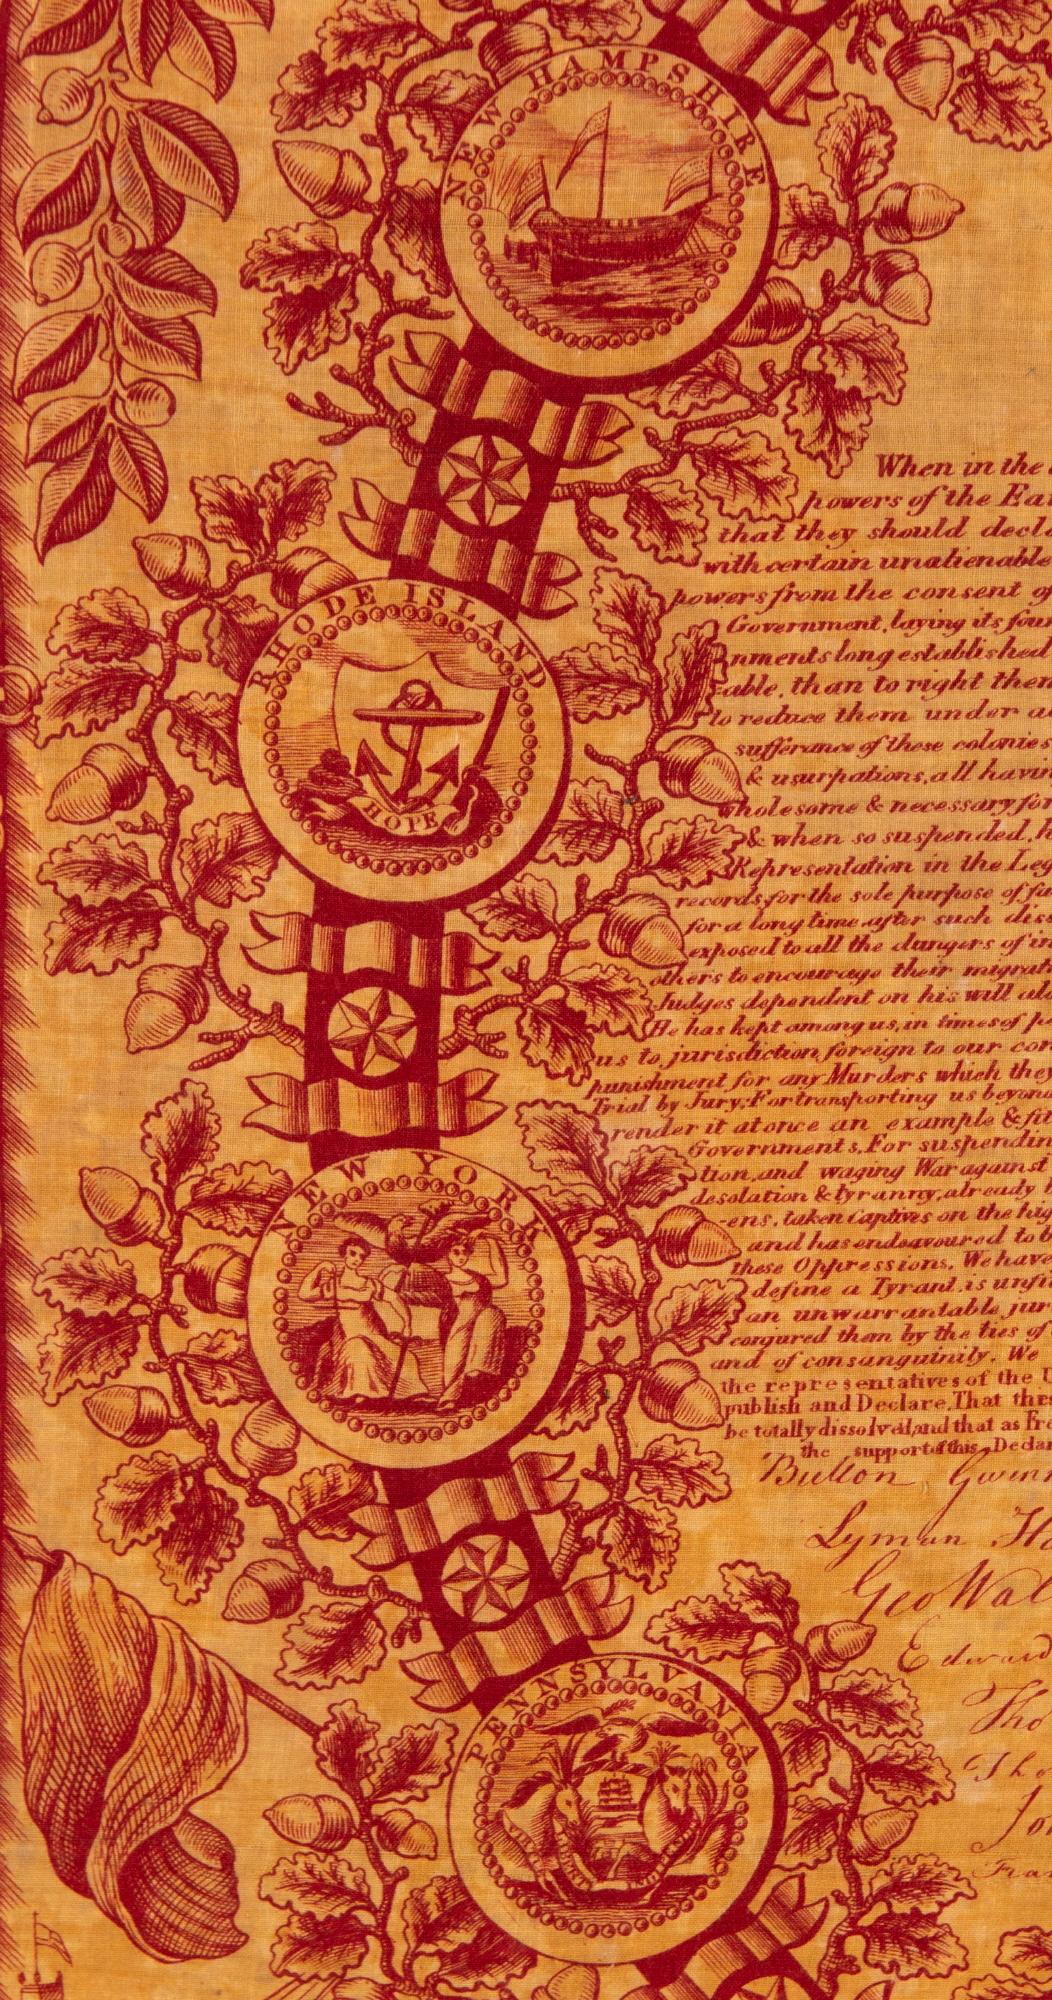 NEW HAMPSHIRE
RHODE ISLAND
HOPE
NEW YORK
PENNSYLVANIA
When in the
powers of the
that they should
with certain unalienable
powers from the consent
Government, laying its
nments long established
able, than to right
to reduce them under
sufferance of these colonies
& usurpations, all
wholesome & necessary for
& when so suspended,
Representation in the
records, for the sole purpose of
for a long time after such
exposed to all the dangers of
others to encourage their
Judges dependent on his will
He has kept among us, in times of
us to jurisdiction, foreign to our
punishment for any Murders which they
Trial by Jury; For transporting us
render it at once an example &
Governments, For
tion, and waging War against
desolation & tyranny, already
-ens, taken Captives on the
and has endeavoured to
these Oppressions. We have
define a Tyrant, is
an unwarrantable
conjured them by the ties of
and of consanguinity. We
the representatives of the
publish and Declare, That
be totally dissolved, and that as
the support of this
Button
Lyman
Geo